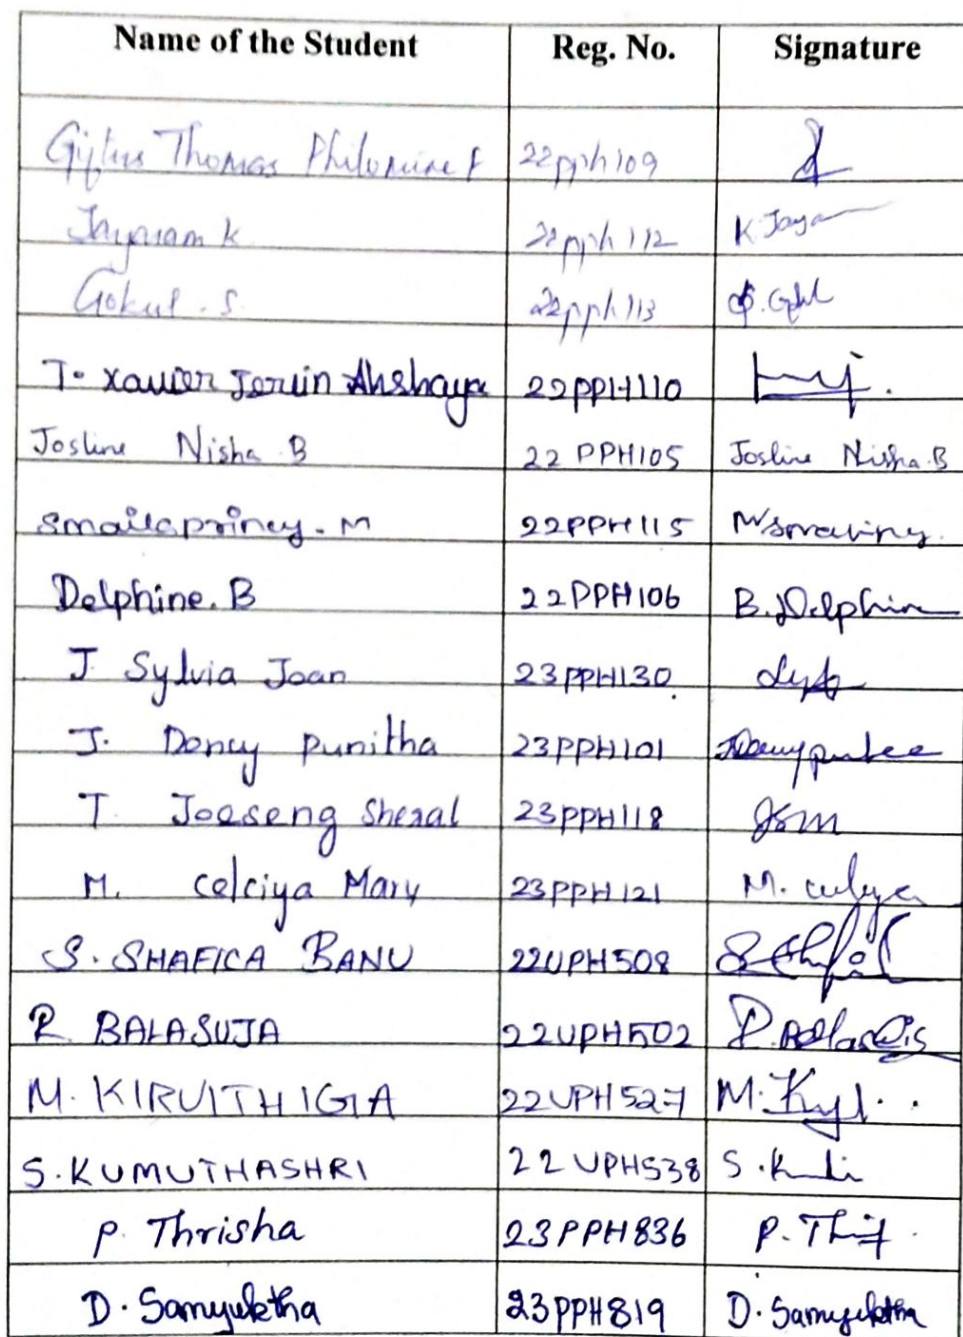 Name of the Student Reg. No. Signature
Giftus Thomas Philomine F 22pph109
Jayaram K 22pph112 K Jaya
Gokul . S. 22pph113
T. Xavier Jervin Akshaya 22PPH110
Josline Nisha B 22 PPH105 Josline Nisha.B
Smailapriney. M 22PPH115
Delphine. B 22PPH106 B. Delphin
J Sylvia Joan 23PPH130
J. Doncy Punitha 23PPH101
T. Joeseng Sheral 23PPH118
M. Celciya Mary 23PPH121 M.
S. SHAFICA BANU 22UPH508
R BALASUJA 22UPH502
M. KIRUITHIGA 22UPH527 M.
S. KUMUTHASHRI 22 UPH538 S.
P. Thrisha 23PPH836 P.
D. Samyuktha 23PPH819 D. Samyuktha